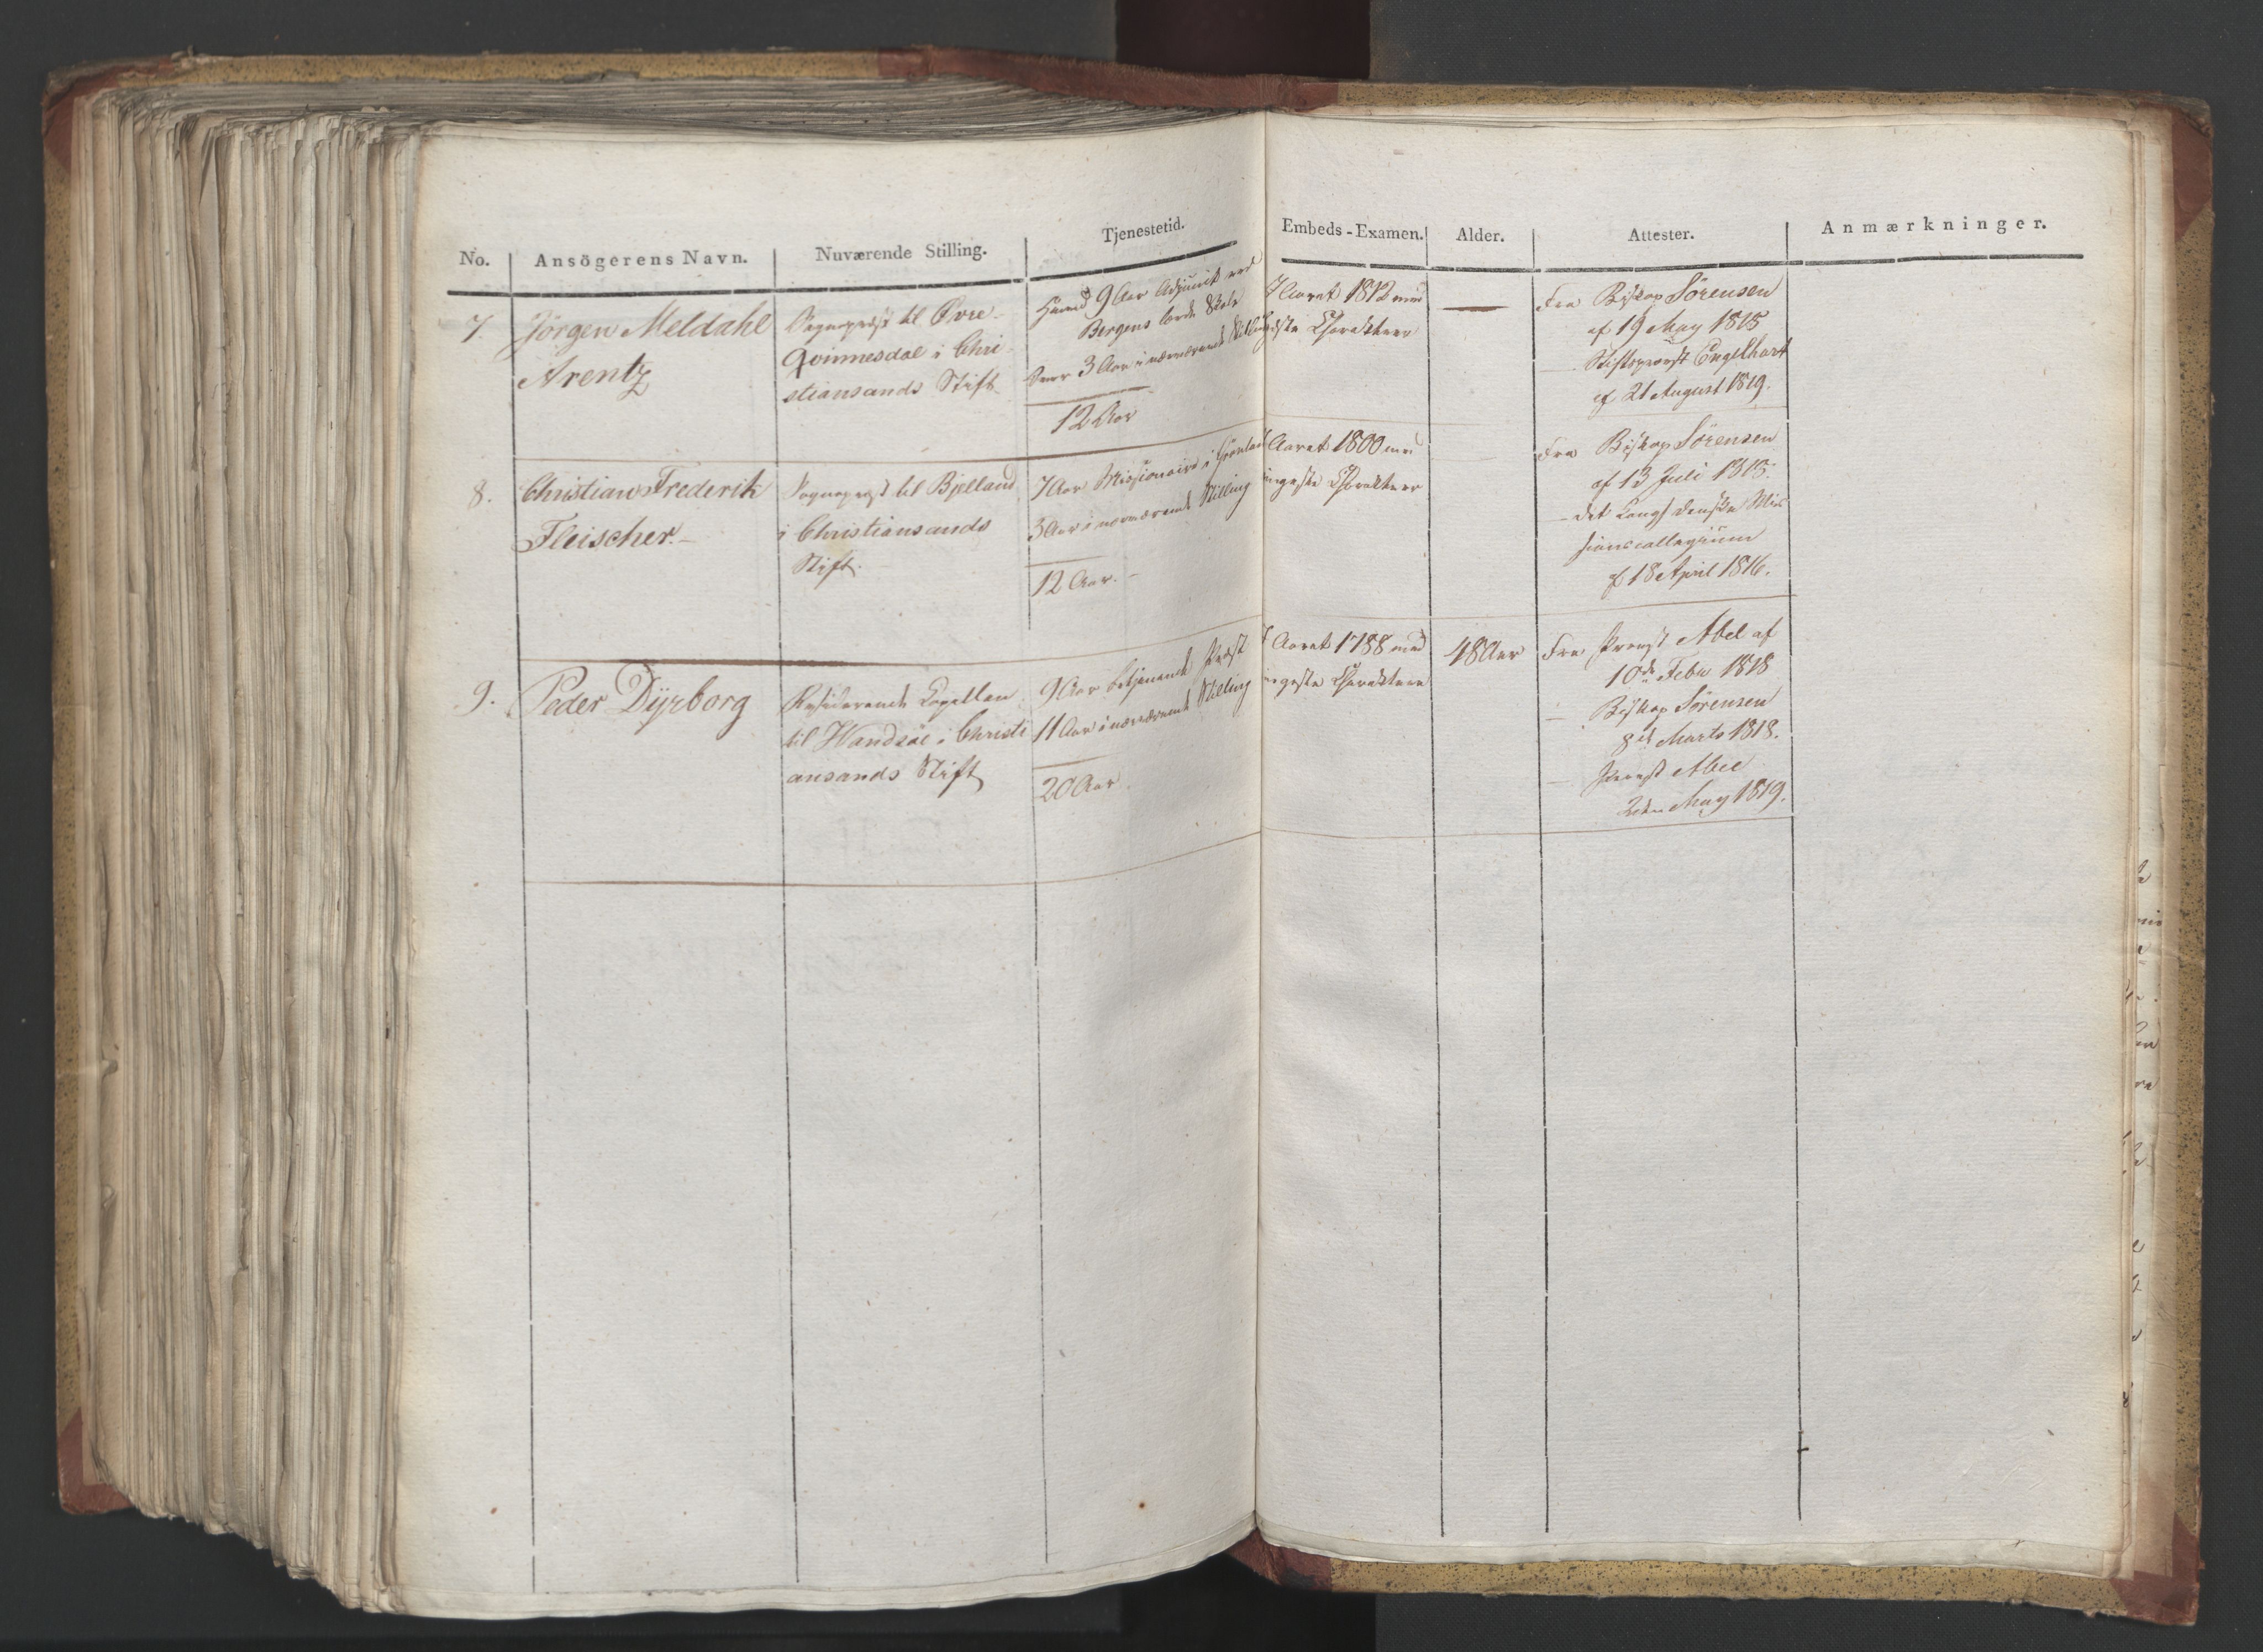 No.
Ansögerens Navn.
Nuværende Stilling.
Tjenestetid.
Embeds-Examen.
Alder.
Attester.
Anmærkninger.
7.
Jörgen Meldahl
Arentz
Sognepræst til Øvre
Qvinnesdal i Chri
stiansands Stift
9 Aar Adjunct ved
Bergens lærde Skole
3 Aar i nærværende Stilling
12 Aar
I Aaret 1812 med
bedste Charakteer
—
Fra Biskop Sörensen
af 19 May 1815
Stiftsprovst Engelhart
af 21 August 1819.
8.
Christian Frederik
Fleischer.-
Sognepræst til Bjelland
i Christiansands
Stift.
7 Aar Missionair i Grönland
3 Aar i nærværende Stilling
12 Aar.-
Aaret 1800 med
ringeste Charakteer
Fra Biskop Sörensen
af 13 Juli 1815.
- det kongl danske Mis
sionscollegium
af 18 April 1816.
9.
Peder Dÿrborg
Residerende Capellan
til Handsöe i Christi
ansands Stift
9 Aar betjenende Præst
11 Aar i nærværende Stilling
20 Aar.
I Aaret 1788 med
ringeste Charakteer
48 Aar
Fra Provst Abel af
10de Febr 1818
— Biskop Sörensen
8de Marts 1818.
— Provst Abel
2den May 1819.